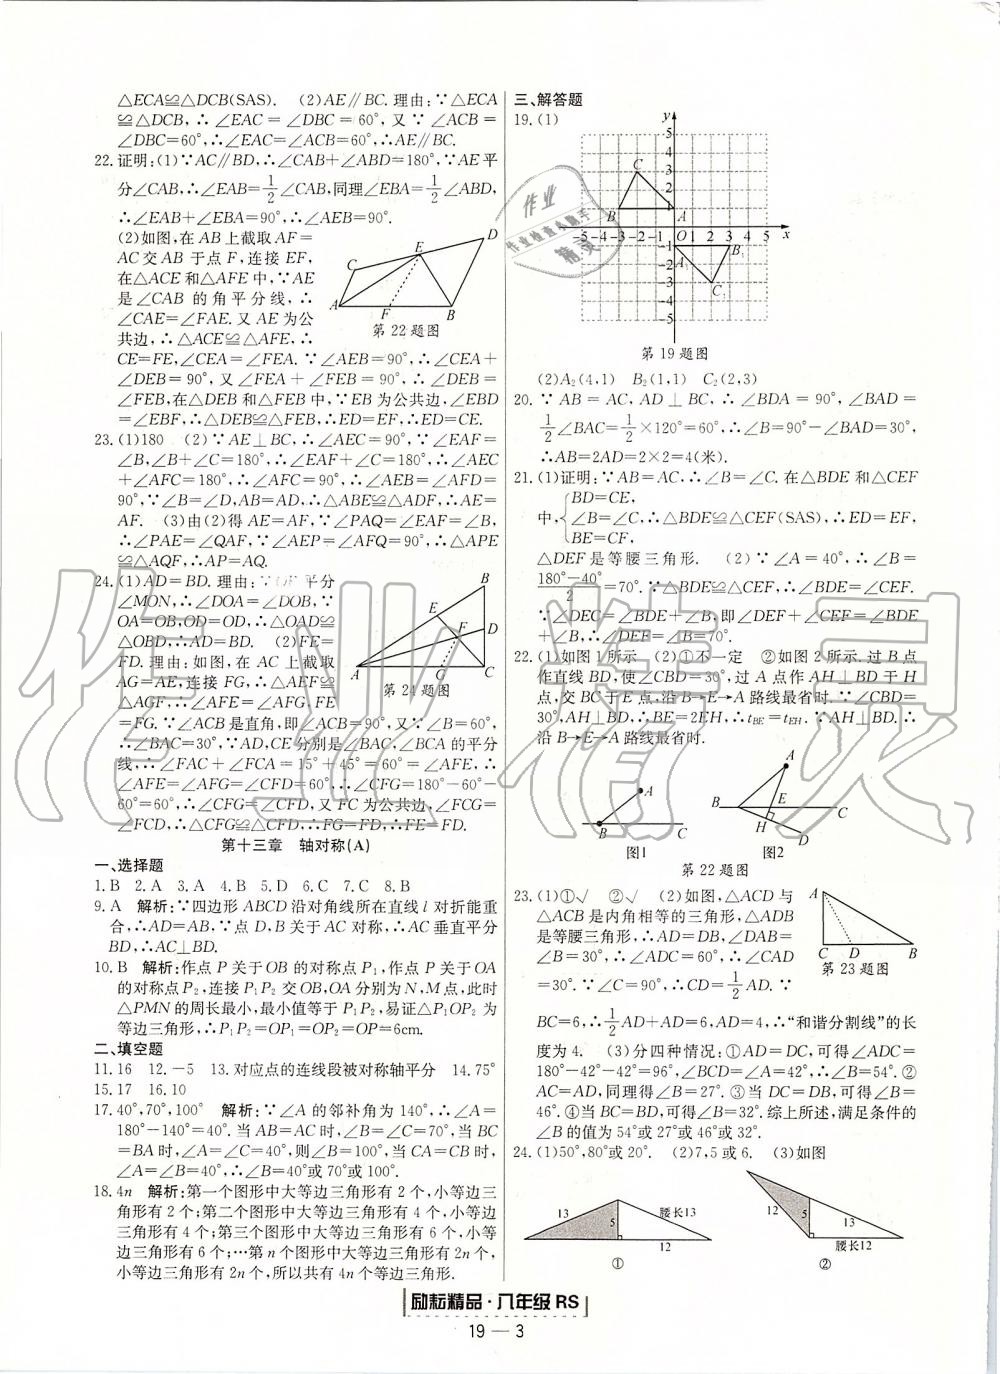 △ECA≌△DCB(SAS). (2)AE∥BC.理由:∵△ECA
≌△DCB,∴∠EAC=∠DBC=60°,又∵∠ACB=
∠DBC=60°,∴∠EAC=∠ACB=60°,∴AE∥BC.
22.证明:(1)∵AC∥BD,∴∠CAB+∠ABD=180°,∵AE平
分∠CAB,∴∠EAB=1/2∠CAB,同理∠EBA=1/2∠ABD,
∴∠EAB+∠EBA=90°,∴∠AEB=90°.
(2)如图,在AB上截取AF=
AC交AB于点F,连接EF,
在△ACE和△AFE中,∵AE
是∠CAB的角平分线,∴
∠CAE=∠FAE.又AE为公
共边,∴△ACE≌△AFE,∴
C
E
D
A
F
B
第22题图
CE=FE,∠CEA=∠FEA.∵∠AEB=90°,∴∠CEA+
∠DEB=90°,又∠FEA+∠FEB=90°,∴∠DEB=
∠FEB,在△DEB和△FEB中,∵EB为公共边,∠EBD
=∠EBF,∴△DEB≌△FEB,∴ED=EF,∴ED=CE.
23.(1)180 (2)∵AE⊥BC,∴∠AEC=90°,∵∠EAF=
∠B,∠B+∠C=180°,∴∠EAF+∠C=180°,∴∠AEC
+∠AFC=180°,∴∠AFC=90°,∴∠AEB=∠AFD=
90°,∵∠B=∠D,AB=AD,∴△ABE≌△ADF,∴AE=
AF. (3)由(2)得AE=AF,∵∠PAQ=∠EAF=∠B,
∴∠PAE=∠QAF,∵∠AEP=∠AFQ=90°,∴△APE
≌△AQF,∴AP=AQ.
24.(1)AD=BD.理由:∵OF平分
∠MON,∴∠DOA=∠DOB,∵
OA=OB,OD=OD,∴△OAD≌
△OBD,∴AD=BD. (2)FE=
FD.理由:如图,在AC上截取
AG=AE,连接FG,∴△AEF≌
△AGF,∴∠AFE=∠AFG,FE
B
E
F
D
A
G
C
第24题图
=FG.∵∠ACB是直角,即∠ACB=90°,又∵∠B=60°,
∴∠BAC=30°,∵AD,CE分别是∠BAC,∠BCA的平分
线,∴∠FAC+∠FCA=15°+45°=60°=∠AFE,∴
∠AFE=∠AFG=∠CFD=60°,∴∠CFG=180°-60°-
60°=60°,∴∠CFG=∠CFD,又FC为公共边,∠FCG=
∠FCD,∴△CFG≌△CFD,∴FG=FD,∴FE=FD.
第十三章 轴对称(A)
一、选择题
1.B 2.A 3.A 4.B 5.D 6.C 7.C 8.B
9.A 解析:∵四边形ABCD沿对角线所在直线l对折能重
合,∴AD=AB.∵点D,B关于AC对称,∴AC垂直平分
BD,∴AC⊥BD.
10.B 解析:作点P关于OB的对称点P₁,作点P关于OA
的对称点P₂,连接P₁P₂交OB,OA分别为N,M点,此时
△PMN的周长最小,最小值等于P₁P₂,易证△P₁OP₂为
等边三角形,∴P₁P₂=OP₁=OP₂=OP=6cm.
二、填空题
11.16 12.-5 13.对应点的连线段被对称轴平分 14.75°
15.17 16.10
17.40°,70°,100° 解析:∵∠A的邻补角为140°,∴∠A=
180°-140°=40°.当AB=AC时,∠B=∠C=70°,当BC
=BA时,∠A=∠C=40°,则∠B=100°,当CA=CB时,
∠A=∠B=40°,∴∠B=40°或70°或100°.
18.4n 解析:第一个图形中大等边三角形有2个,小等边三
角形有2个;第二个图形中大等边三角形有4个,小等边
三角形有4个;第三个图形中大等边三角形有6个,小等
边三角形有6个;…第n个图形中大等边三角形有2n个,
小等边三角形有2n个,所以共有4n个等边三角形.
三、解答题
19.(1)
y
5
4
3
2
1
C
B
A
-5-4-3-2-1
O
1 2 3 4 5
x
-1
-2
-3
-4
-5
A₁
B₁
C₁
第19题图
(2)A₂(4,1) B₂(1,1) C₂(2,3)
20.∵AB=AC,AD⊥BC,∴∠BDA=90°,∠BAD=
1/2∠BAC=1/2×120°=60°,∴∠B=90°-∠BAD=30°,
∴AB=2AD=2×2=4(米).
21.(1)证明:∵AB=AC,∴∠B=∠C.在△BDE和△CEF
中,{BD=CE,
∠B=∠C,∴△BDE≌△CEF(SAS),∴ED=EF,
BE=CF,
△DEF是等腰三角形. (2)∵∠A=40°,∴∠B=
(180°-40°)/2=70°.∵△BDE≌△CEF,∴∠BDE=∠CEF.
∵∠DEC=∠BDE+∠B,即∠DEF+∠CEF=∠BDE
+∠B,∴∠DEF=∠B=70°.
22.(1)如图1所示 (2)①不一定 ②如图2所示.过B点
作直线BD,使∠CBD=30°,过A点作AH⊥BD于H
点,交BC于E点,沿B→E→A路线最省时.∵∠CBD=
30°,AH⊥BD,∴BE=2EH,∴tBE=tEH.∵AH⊥BD.∴
沿B→E→A路线最省时.
A
B
C
图1
A
B
E
C
H
D
图2
第22题图
23.(1)①√ ②√ (2)如图,△ACD与
△ACB是内角相等的三角形,△ADB
是等腰三角形,∴AD=DB,∠DAB=
∠B=30°,∴∠ADC=60°,∴∠CAD
=30°.∵∠C=90°,∴CD=1/2AD.∵
A
C
D
B
第23题图
BC=6,∴1/2AD+AD=6,AD=4,∴“和谐分割线”的长
度为4. (3)分四种情况:①AD=DC,可得∠ADC=
180°-42°-42°=96°,∠BCD=∠A=42°,∴∠B=54°.②
AC=AD,同理得∠B=27°.③当DC=DB,可得∠B=
46°.④当BC=BD,可得∠B=32°.综上所述,满足条件的
∠B的值为54°或27°或46°或32°.
24.(1)50°,80°或20°. (2)7,5或6. (3)如图
13
5
腰长13
12
①
12
5
13
腰长12
②
励耘精品·八年级 RS
19 — 3
作业精灵
作业
作业检查小助手
精灵